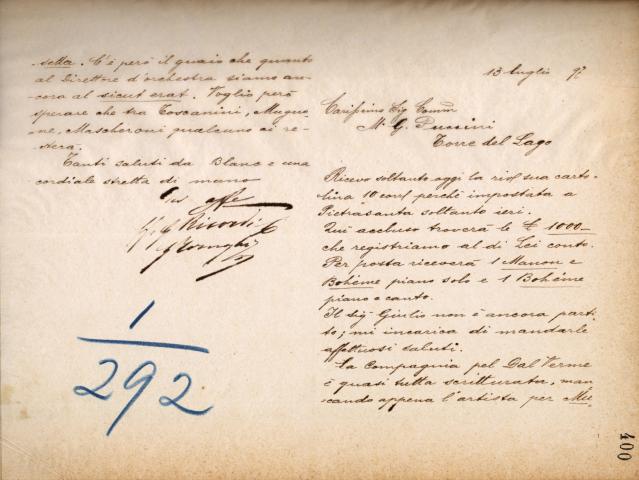 13 Luglio 97
Carissimo Sig Comm
M. G. Puccini
Torre del Lago
Ricevo soltanto oggi la sua carto-
lina 10 corr perchè impostata a
Pietrasanta soltanto ieri.
Qui accluso troverà le £ 1000-
che registriamo al di Lei conto.
Per posta riceverà 1 Manon e
Bohème piano solo e 1 Bohème
piano e canto.
Il sig Giulio non è ancora parti-
to; mi incarica di mandarle
affettuosi saluti.
La Compagnia pel Dal Verme
è quasi tutta scritturata, man-
cando appena l'artista per Mu-
setta. C'è però il guaio che quanto
al Direttore d'orchestra siamo an-
cora al sicut erat. Voglio però
sperare che tra Toscanini, Mugno-
ne, Mascheroni qualcuno ci re-
sterà.
Tanti saluti da Blanc e una
cordiale stretta di mano
G. Ricordi C
1
292
400